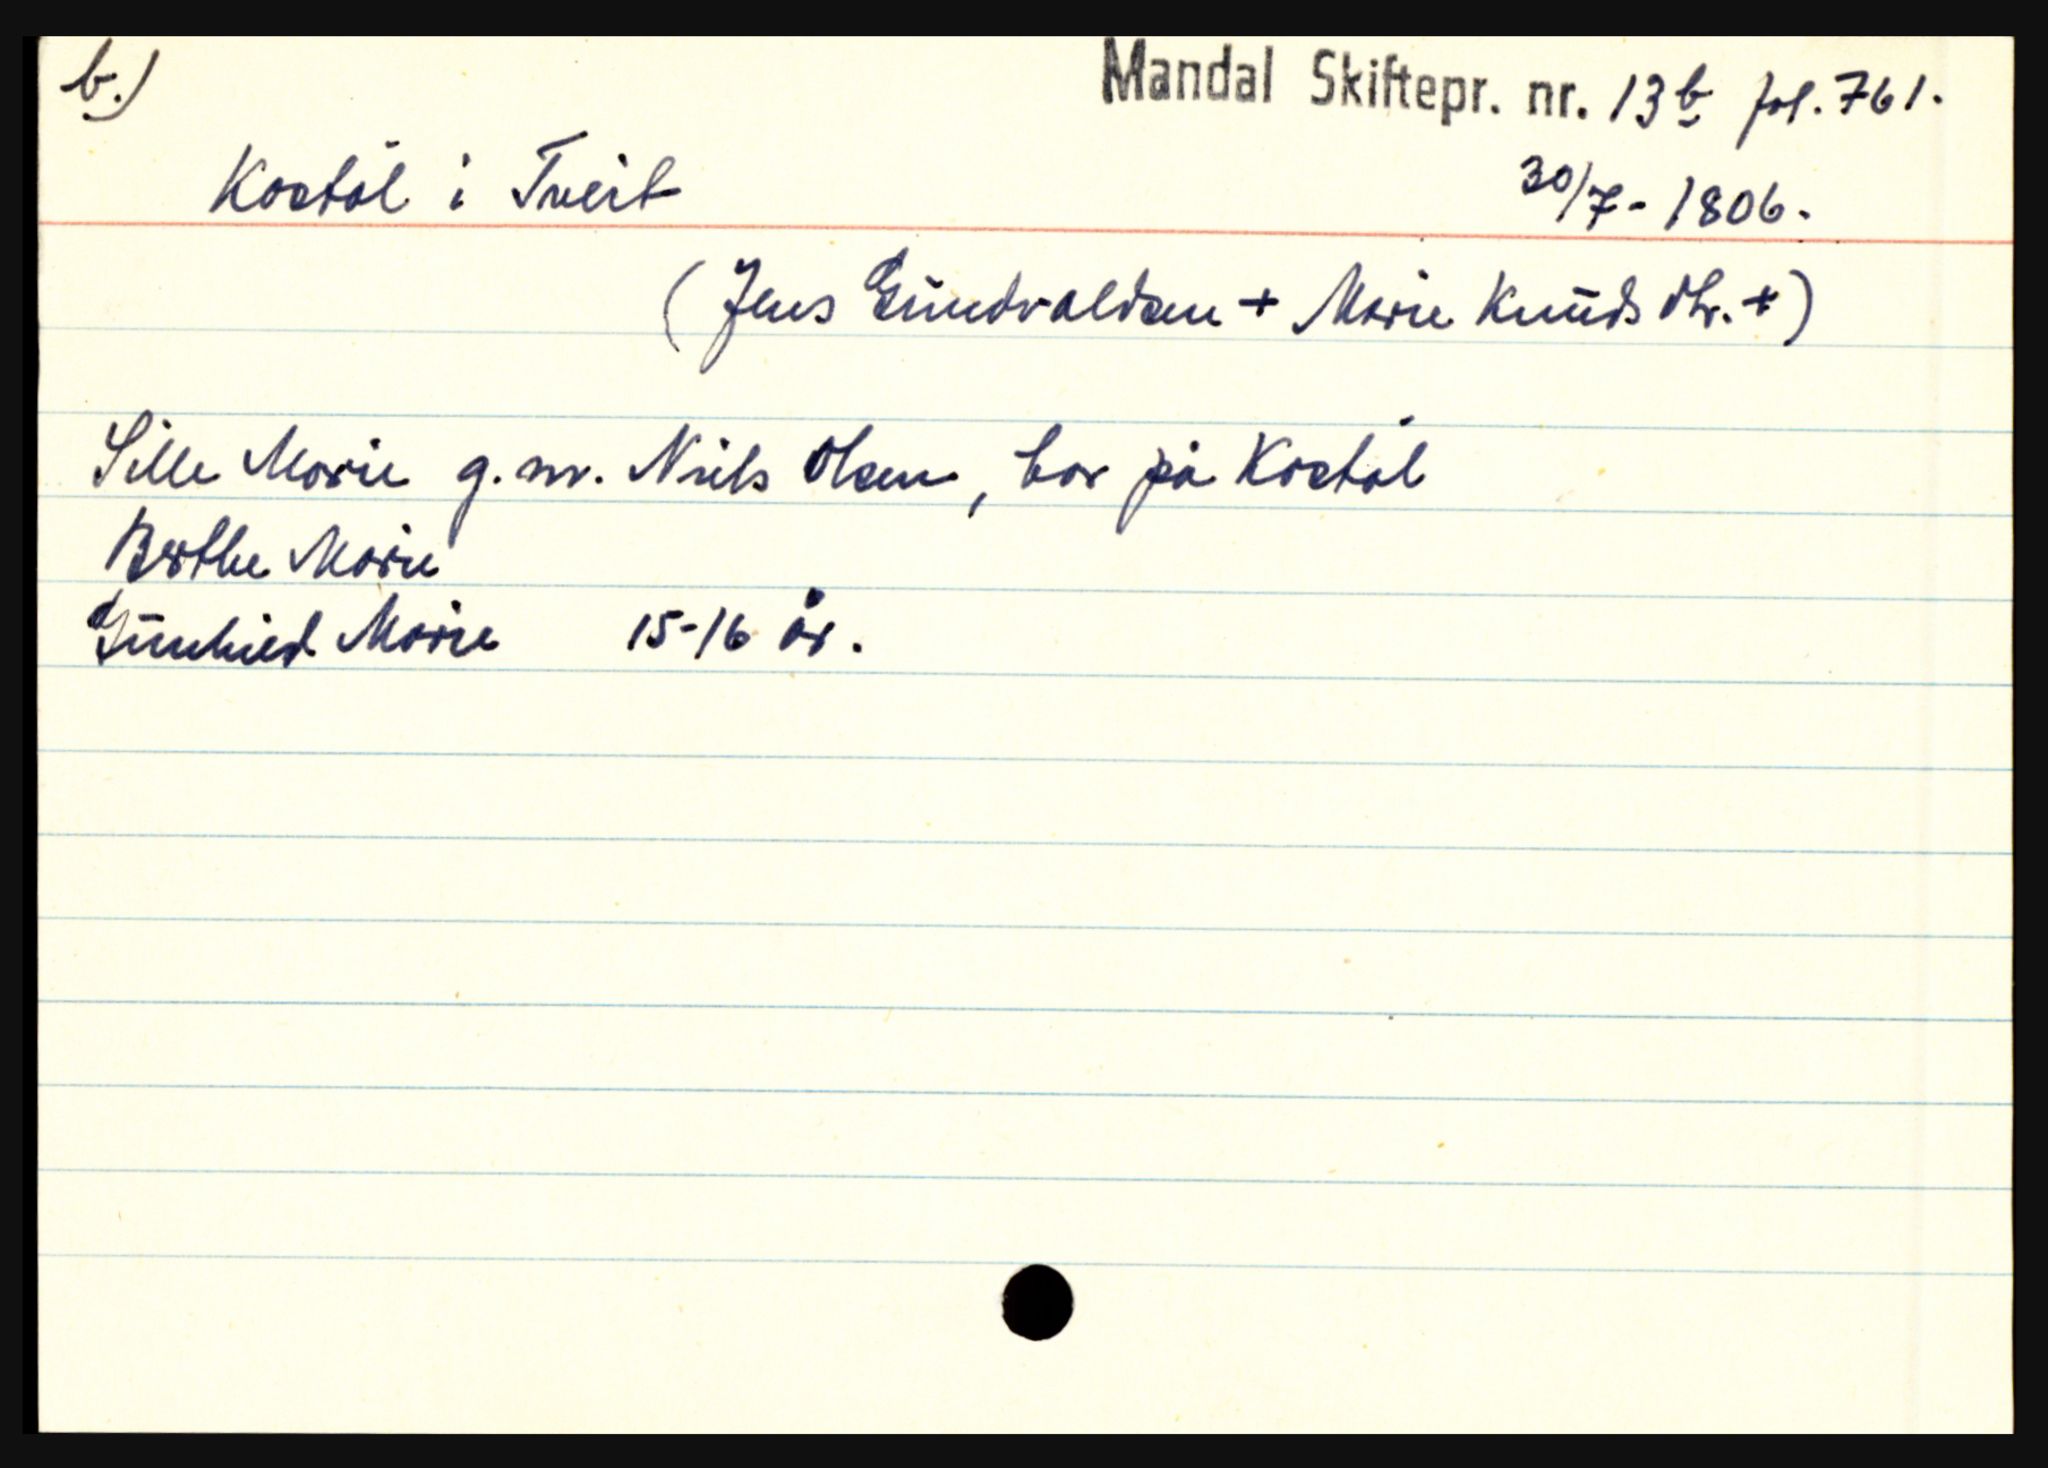 b.)
Mandal Skiftepr. nr. 13b fol. 761.
Kostøl i Tveit
30/7-1806.
(Jens Gundvaldsen + Marie Knudsdtr. +)
Sille Marie g.m. Niels Olsen, bor på Kostøl
Berthe Marie
Gunhild Marie 15-16 år.